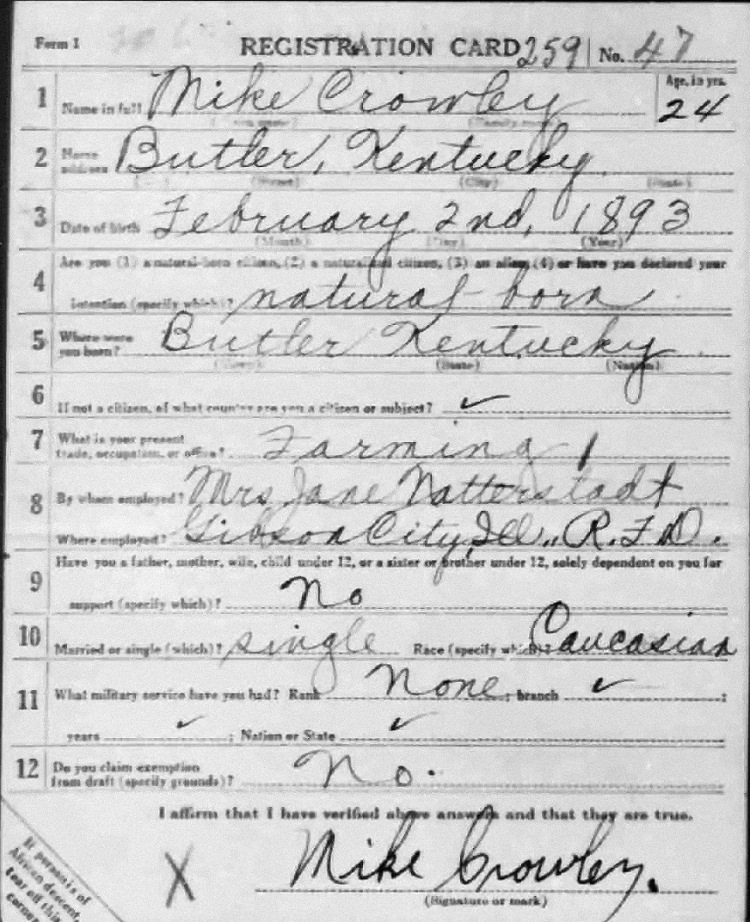 Form 1 REGISTRATION CARD 259 No. 47
1 Name in full Mike Crowley Age, in yrs. 24
(Family name)
2 Home address Butler, Kentucky
(Street) (City) (State)
3 Date of birth February 2nd, 1893
(Month) (Day) (Year)
4 Are you (1) a natural-born citizen, (2) a naturalized citizen, (3) an alien, (4) or have you declared your
intention (specify which)? natural-born
5 Where were you born? Butler Kentucky
(Town) (State) (Nation)
6 If not a citizen, of what country are you a citizen or subject? ✓
7 What is your present trade, occupation, or office? Farming 1
8 By whom employed? Mrs Jane Natterstadt
Where employed? Gibson City, Ill., R.F.D.
9 Have you a father, mother, wife, child under 12, or a sister or brother under 12, solely dependent on you for
support (specify which)? No
10 Married or single (which)? single Race (specify which)? Caucasian
11 What military service have you had? Rank None; branch ✓ ;
years ✓ ; Nation or State ✓
12 Do you claim exemption from draft (specify grounds)? No.
I affirm that I have verified above answers and that they are true.
X Mike Crowley.
(Signature or mark)
If person is of
African descent,
tear off this
corner